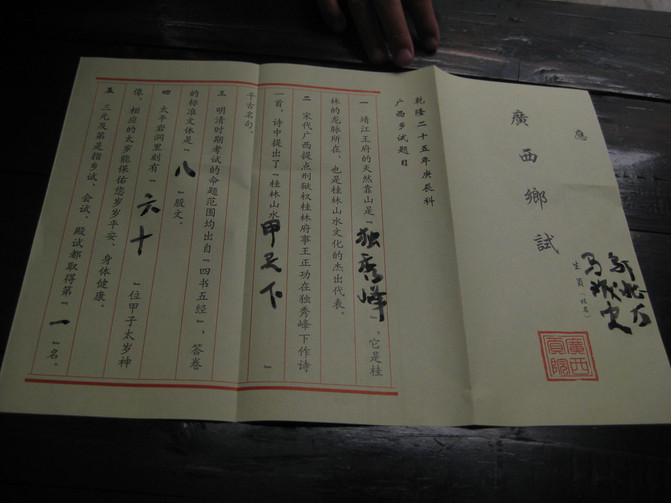 應
廣西鄉試
生員（姓名）
廣西
貢院
乾隆二十五年庚辰科
广西乡试题目
一 靖江王府的天然靠山是“独秀峰”，它是桂
林的龙脉所在，也是桂林山水文化的杰出代表。
二 宋代广西提点刑狱权桂林府事王正功在独秀峰下作诗
一首，诗中提出了“桂林山水甲天下”
千古名句。
三 明清时期考试的命题范围均出自“四书五经”，答卷
的标准文体是“八”股文。
四 太平岩洞里刻有“六十”位甲子太岁神
像，相应的太岁能保佑您岁岁平安、身体健康。
五 三元及第是指乡试、会试、殿试都取得第“一”名。